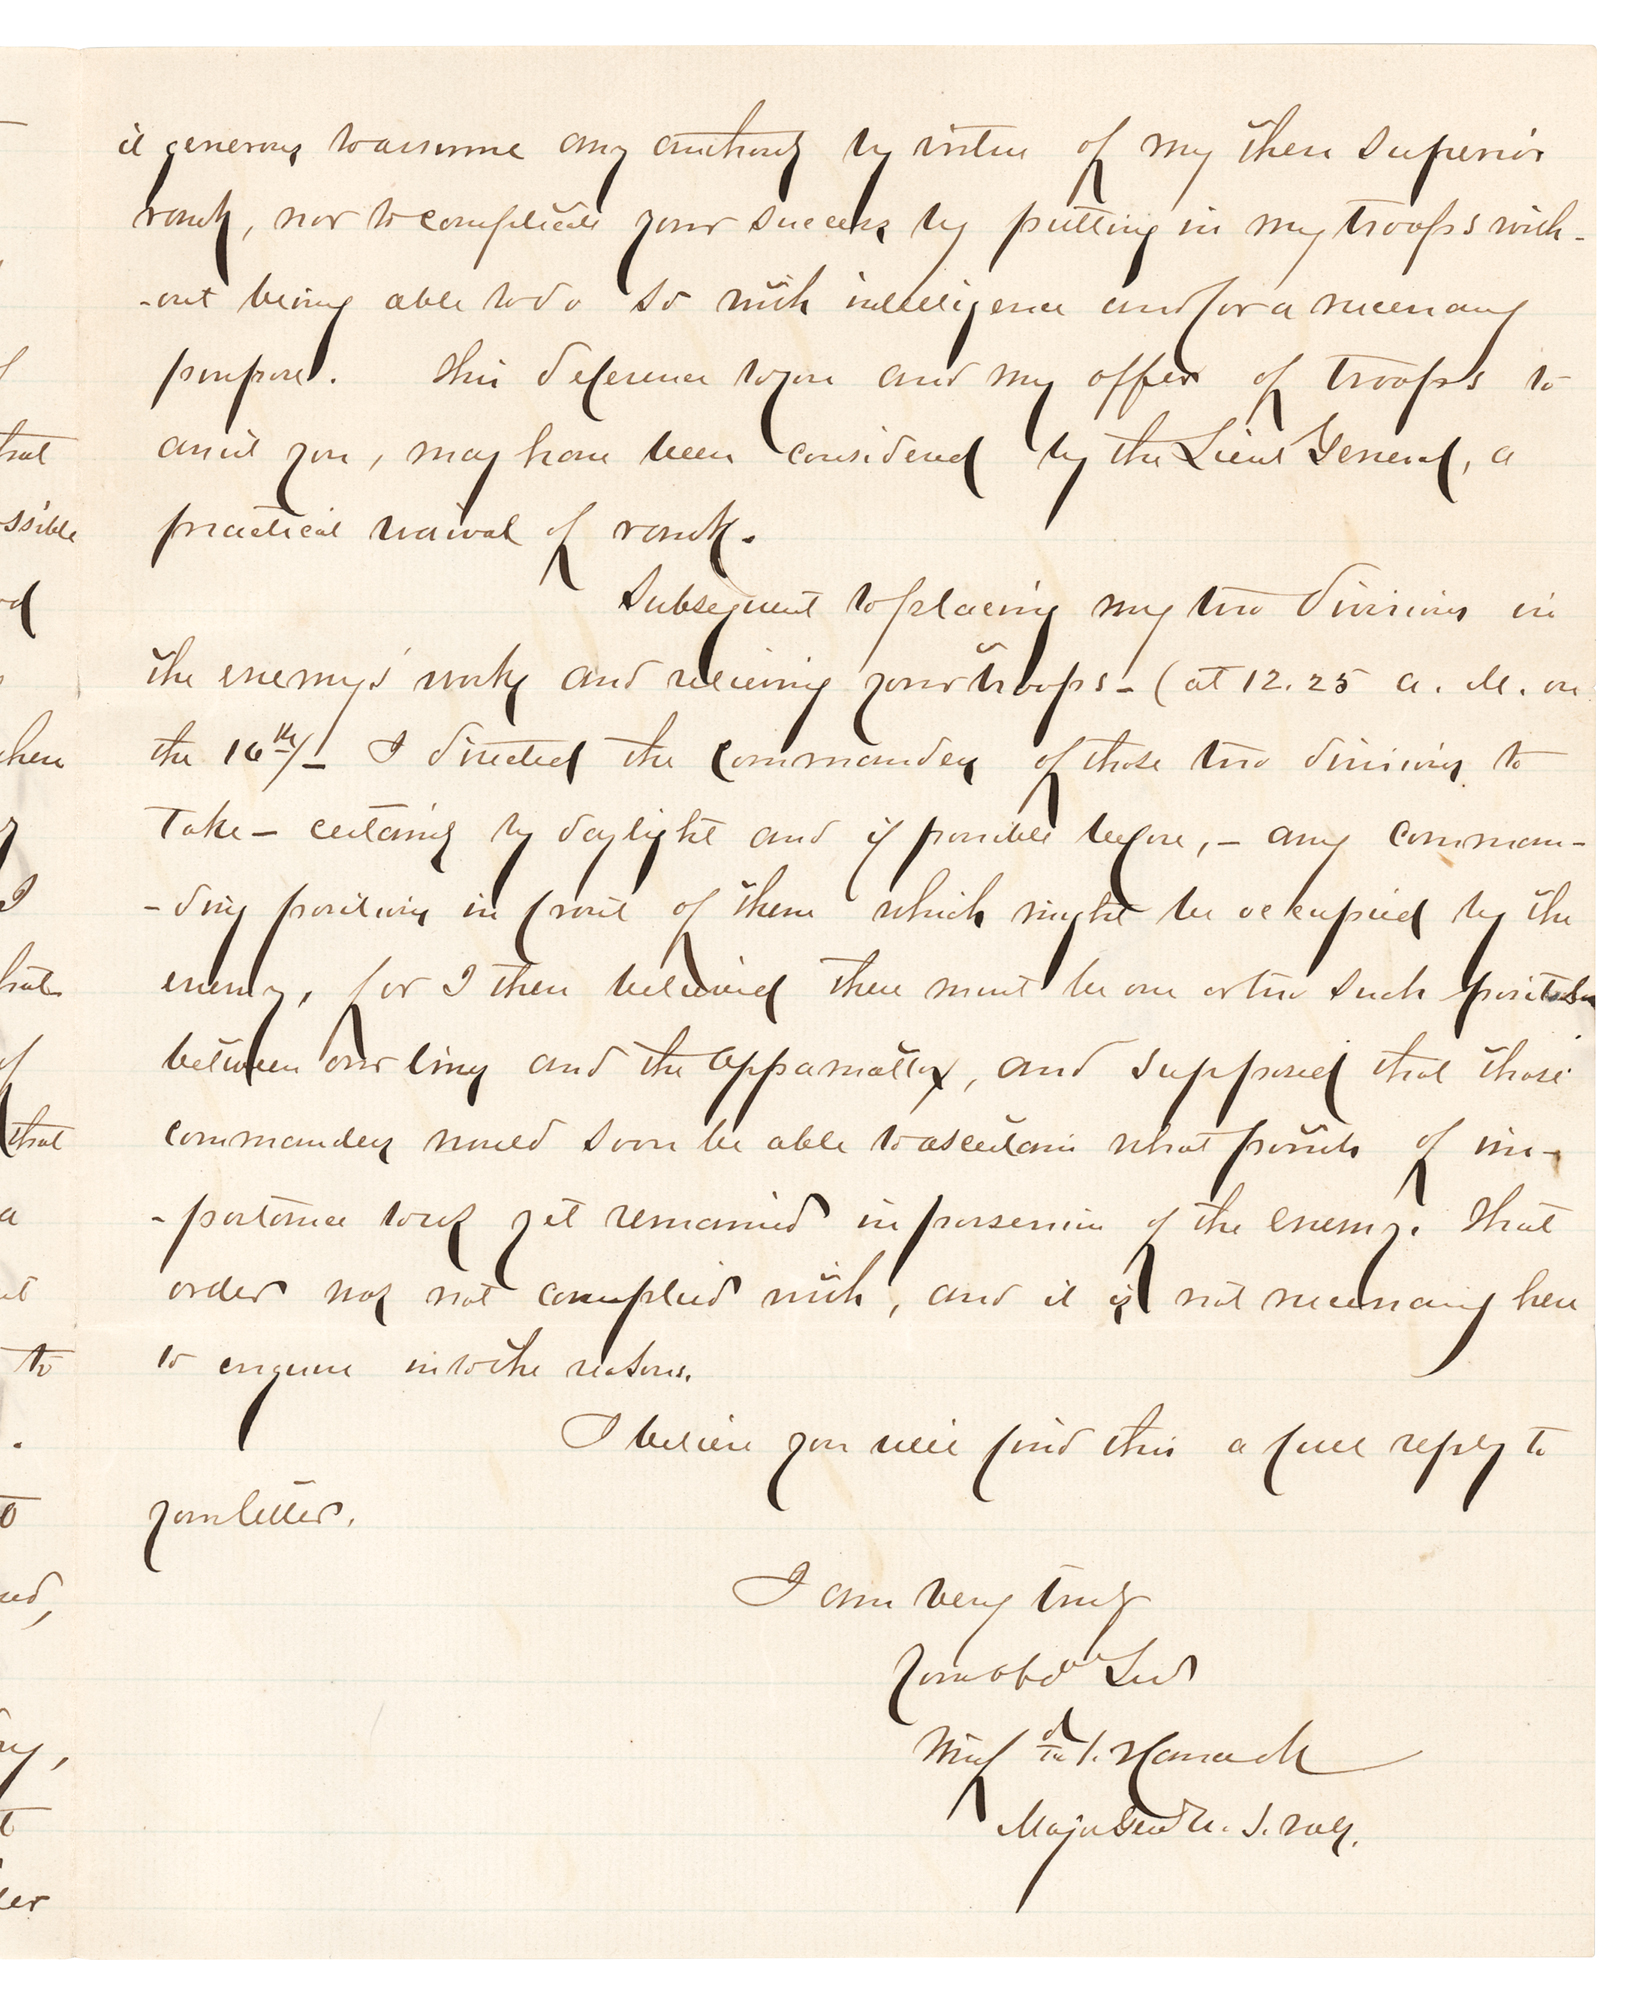 it generous to assume any authority by virtue of my then superior
rank, nor to complicate your success by putting in my troops with-
-out being able to do so with intelligence and for a necessary
purpose. This deference to you and my offer of troops to
assist you, may have been considered by the Lieut General, a
practical waival of rank.
Subsequent to placing my two divisions in
the enemy's works and relieving your troops - (at 12.25 a. M. on
the 16th/ - I directed the commanders of those two divisions to
take - certainly by daylight and if possible before, - any comman-
-ding positions in front of them which might be occupied by the
enemy, for I then believed there must be one or two such positions
between our lines and the Appamattox, and supposed that those
commanders would soon be able to ascertain what points of im-
-portance to us yet remained in possession of the enemy. That
order was not complied with, and it is not necessary here
to enquire into the reasons.
I believe you will find this a full reply to
your letter.
I am very truly
Your obdt Svt
Winf'd S. Hancock
Major Genl U. S. Vols.
that
ssible
when
I
that
of
that
a
to
.
to
t